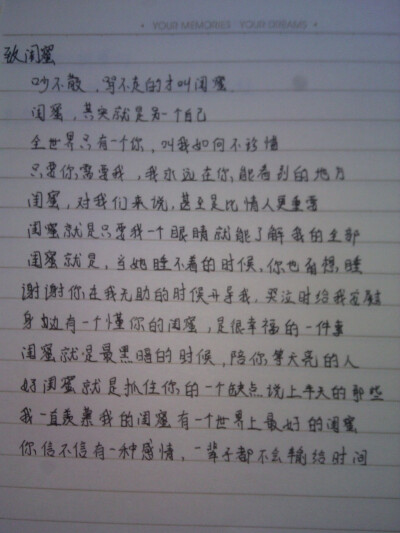 · YOUR MEMORIES   YOUR DREAMS ·
致闺蜜
吵不散，骂不走的才叫闺蜜
闺蜜，其实就是另一个自己
全世界只有一个你，叫我如何不珍惜
只要你需要我，我永远在你能看到的地方
闺蜜，对我们来说，甚至是比情人更重要
闺蜜就是只要我一个眼睛就能了解我的全部
闺蜜就是，当她睡不着的时候，你也别想睡
谢谢你在我无助的时候开导我，哭泣时给我安慰
身边有一个懂你的闺蜜，是很幸福的一件事
闺蜜就是最黑暗的时候，陪你等天亮的人
好闺蜜就是抓住你的一个缺点说上半天的那些
我一直羡慕我的闺蜜有一个世界上最好的闺蜜
你信不信有一种感情，一辈子都不会输给时间